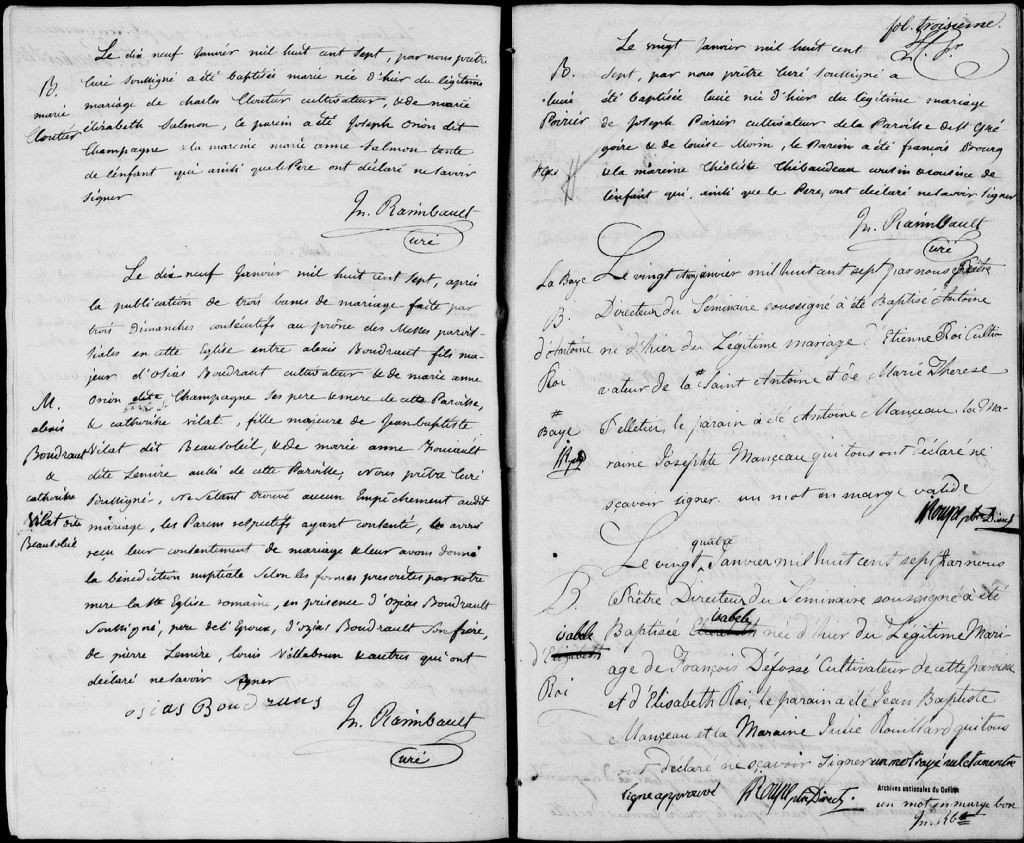 Le dix neuf Janvier mil huit cent sept, par nous prêtre
Curé soussigné a été baptisée marie née d'hier du légitime
mariage de charles Cloutier cultivateur, & de marie
élizabeth Salmon, le parein a été Joseph onion dit
Champagne & la mareine marie anne Salmon tente
de l'enfant qui ainsi que le Pere ont déclaré ne savoir
signer
B.
marie
Cloutier
Jn. Raimbault
Curé
Le dix neuf Janvier mil huit cent sept, après
la publication de trois bans de mariage faite par
trois dimanches consécutifs au prône des Messes parois-
siales en cette Eglise entre alexis Boudraut fils ma-
jeur d'osias Boudraut cultivateur & de marie anne
onion dite Champagne ses pere & mere de cette Paroisse,
& catherine vilat, fille majeure de Jean baptiste
Vilat dit Beausoleil, & de marie anne
dite Lemire aussi de cette Paroisse, Nous prêtre Curé
Soussigné, ne s'étant trouvé aucun Empêchement audit
mariage, les Parens respectifs ayant consenté, avons
reçu leur consentement de mariage & leur avons donné
la bénédiction nuptiale selon les formes prescrites par notre
mere la Ste Eglise romaine, en présence d'osias Boudrault
Soussigné, pere de l'Epoux, d'ozias Boudrault son frère,
de pierre Lemire, louis Villabrun & autres qui ont
déclaré ne savoir signer
M.
alexis
Boudraut
&
catherine
Vilat dite
Beausoleil
osias Boudraus
Jn. Raimbault
Curé
fol. troisieme.
Le vingt Janvier mil huit cent
sept, par nous prêtre Curé soussigné a
été baptisée lucie née d'hier du légitime mariage
de Joseph Poirier cultivateur de la Paroisse de St Gré
goire & de louise Morin, le Parein a été françois Bourg
& la mareine théotiste Thibaudeau cousin & cousine de
l'enfant qui, ainsi que le Pere, ont déclaré ne savoir signer
B.
lucie
Poirier
Jn. Raimbault
Curé
Le vingt janvier mil huit cent sept par nous Prêtre
Directeur du Séminaire soussigné à été Baptisé Antoine
né d'hier du Légitime mariage d'Etienne Roi Culti
vateur de la # Saint Antoine et de Marie Therese
Pelletier, le parain a été Antoine Manseau la Ma-
raine Josephte Manseau qui tous ont déclaré ne
sçavoir signer. un mot en marge valide
La Baye
B.
d'Antoine
Roi
#
Baye
JRoupe ptre Direct
quatre
Le vingt ^ Janvier mil huit cent sept par nous
Prêtre Directeur du Seminaire soussigné à été
isabele
Baptisée née d'hier du Légitime Mari
age de François Défossé Cultivateur de cette paroisse
et d'Elisabeth Roi, le parain a été Jean Baptiste
Manseau et la Maraine Julie Rouillard qui tous
ont declaré ne sçavoir Signer un mot rayé nul et un entre
ligne approuvé
B.
isabele
d'Elizabeth
Roi
JRoupe ptre Direct.
Archives nationales du Québec
un mot en marge bon
Jn. Rbt